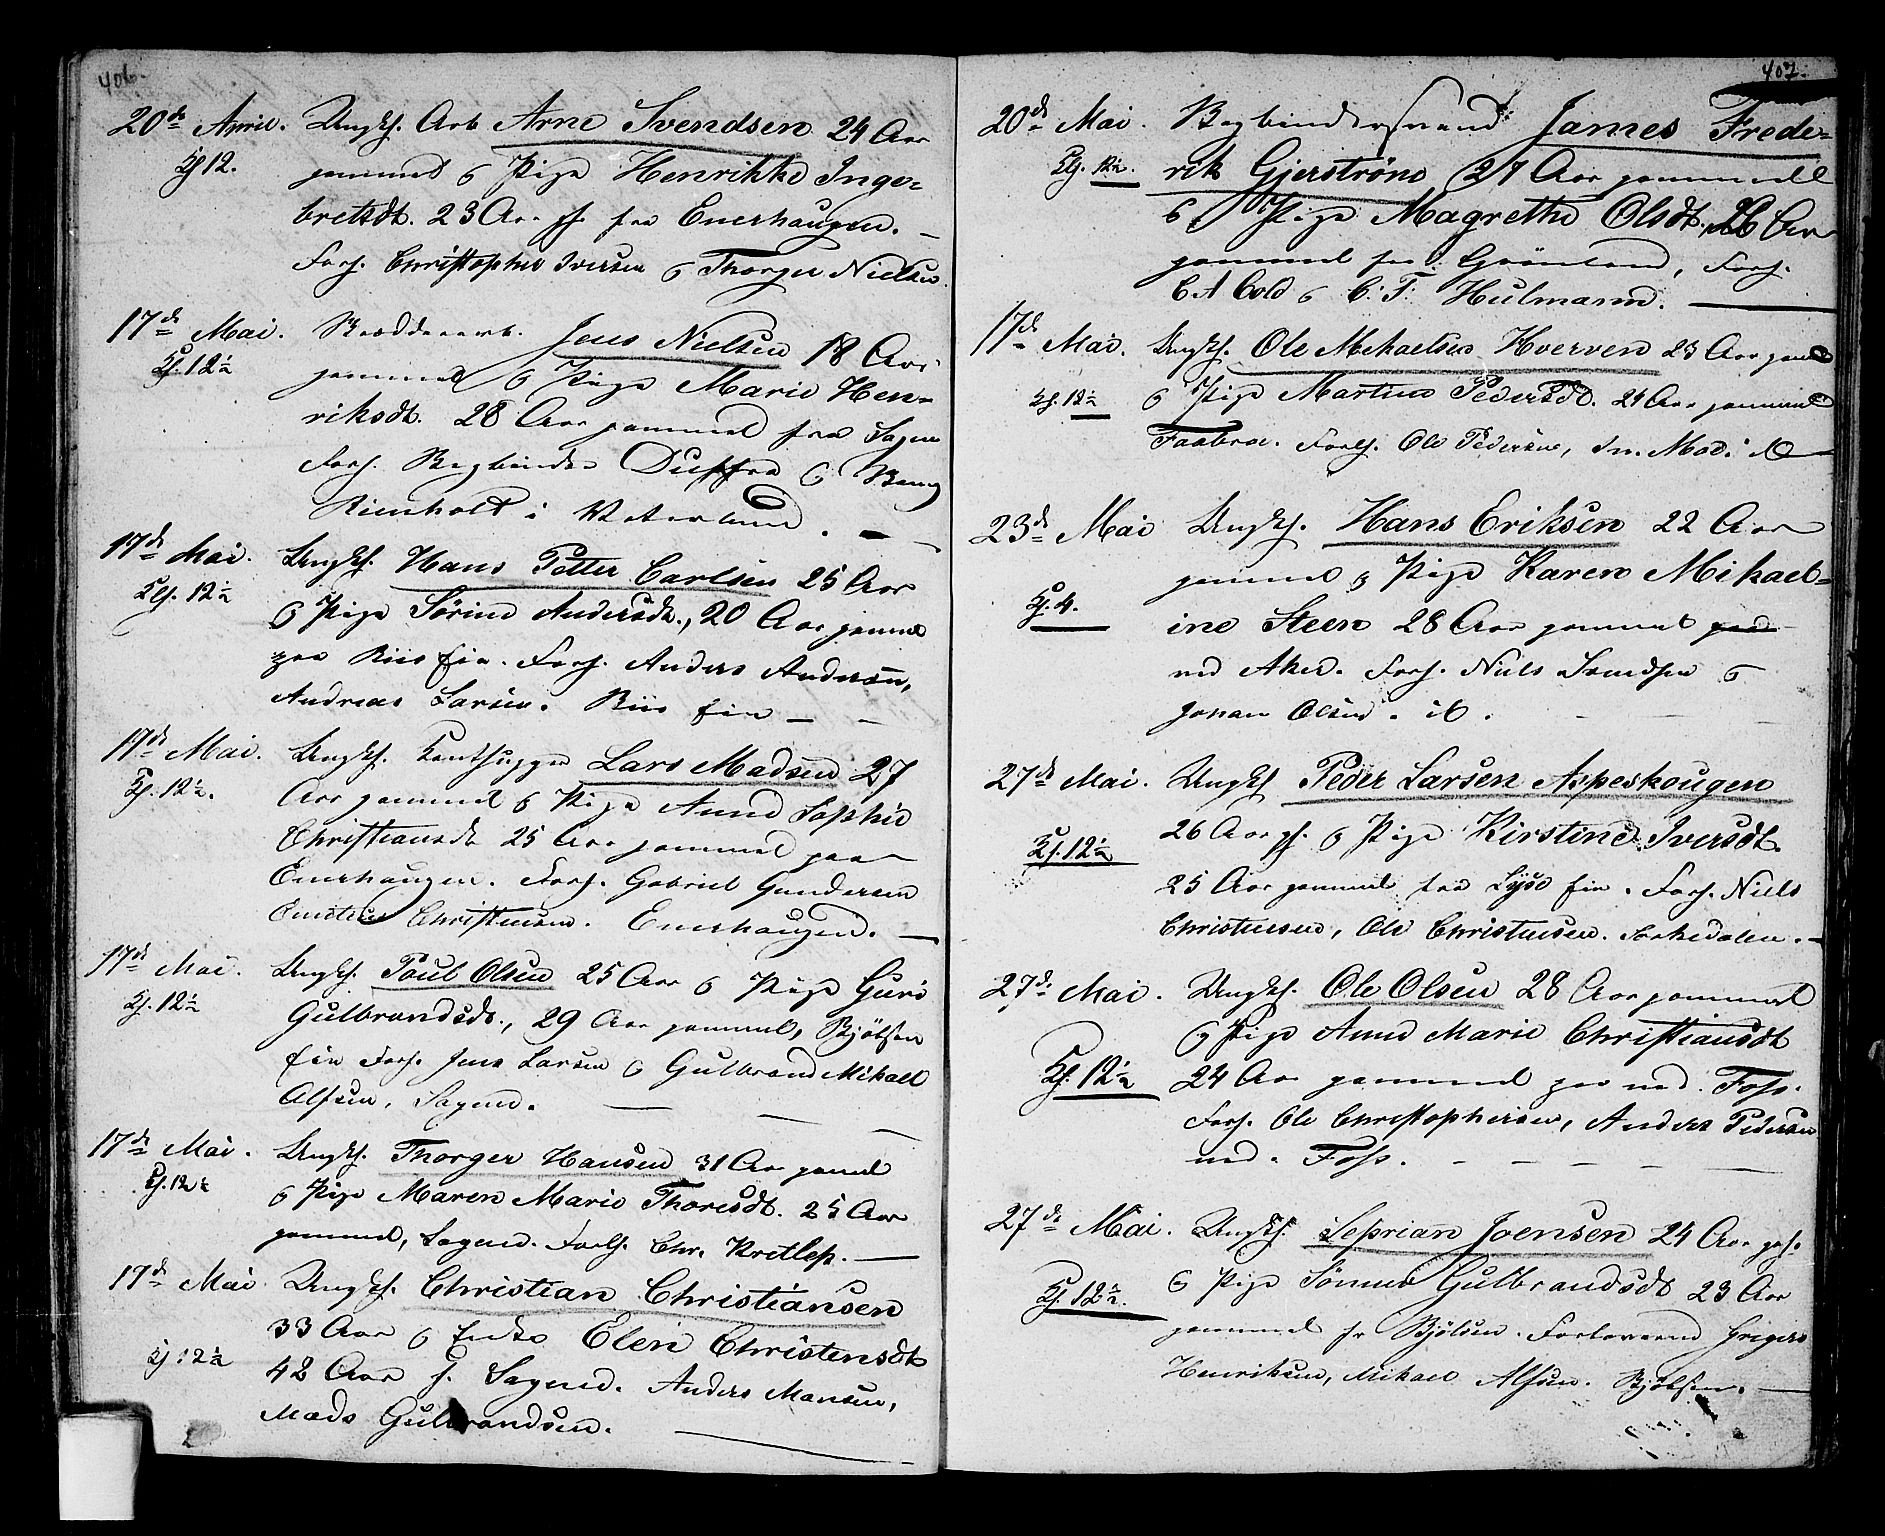 406.
20de April. Ungk. Arb Arne Svendsen 24 Aar
Kl 12. gammel og Pige Henrikke Inge-
bretsdt. 23 Aar gl. fra Enerhaugen.
Forl. Christopher Iversen og Thorger Nielsen.
17de Mai. Jens Nielsen 18 Aar
Kl. 12½ gammel og Pige Marie Hen-
riksdt. 28 Aar gammel fra Sagene
Forl. Bogbinder og
i Vaterland.
17de Mai. Ungk. Hans Petter Carlsen 25 Aar
Kl. 12½ og Pige Sørine Andersdt., 20 Aar gammel
paa Riis Eie. Forl. Anders Andersen,
Andreas Larsen. Riis Eie
17de Mai. Ungk. Lars Madsen 27
Kl. 12½. Aar gammel og Pige Anne Sophie
Christiansdt 25 Aar gammel paa
Enerhaugen. Forl. Gabriel Gundersen
Christensen. Enerhaugen.
17de Mai. Ungk. Poul Olsen 25 Aar og Pige Guri
Kl. 12½ Gulbrandsdt., 29 Aar gammel, Bjølsen
Eie Forl. Jens Larsen og Gulbrand Mikael
Alfsen, Sagene.
17de Mai. Ungk. Thorger Hansen 31 Aar gamel
Kl. 12½ og Pige Maren Marie Thoresdt. 25 Aar
gammel, Sagene. Forl. Chr.
17de Mai Ungk. Christian Christiansen
Kl 12½ 33 Aar og Enke Elen Christensdt
42 Aar f. Sagene. Anders Mansen,
Mads Gulbrandsen.
407.
20de Mai. Bogbindersvend James Frede-
Kl. 12½. rik Gjerstrøm 27 Aar gammel
og Pige Magrethe Olsdt. 26 Aar
gammel fra Grønland, Forl.
C A Cold og C. F. Hulmann.
17de Mai. Ungk. Ole Mikaelsen Hverven 23 Aar gamel
Kl. 12½ og Pige Martine Pedersdt. 24 Aar gammel
Faabroe. Forl. Ole Pedersen,
23de Mai Ungk. Hans Eriksen 22 Aar
Kl. 4. gammel og Pige Karen Mikael-
ine Steen 28 Aar gammel
ned Aker. Forl. Niels Svendsen og
Johan Olsen. ib.
27de Mai. Ungk Peder Larsen Appeskougen
Kl. 12½ 26 Aar gl. og Pige Kirstine Iversdt.
25 Aar gammel fra Lysø Eie. Forl. Niels
Christensen, Ole Christensen. Sørkedalen.
27de Mai. Ungk. Ole Olsen 28 Aar gammel
Kl. 12½ og Pige Anne Marie Christiansdt
24 Aar gammel paa ned. Foss.
Forl. Ole Christophersen, Anders Pedersen
ned. Foss.
27de Mai. Ungk. Seprian Joensen 24 Aar gl.
Kl. 12½. og Pige Gulbrandsdt 23 Aar
gammel fr Bjølsen. Forlovere Grigers
Henriksen, Mikael Alfsen. Bjølsen.